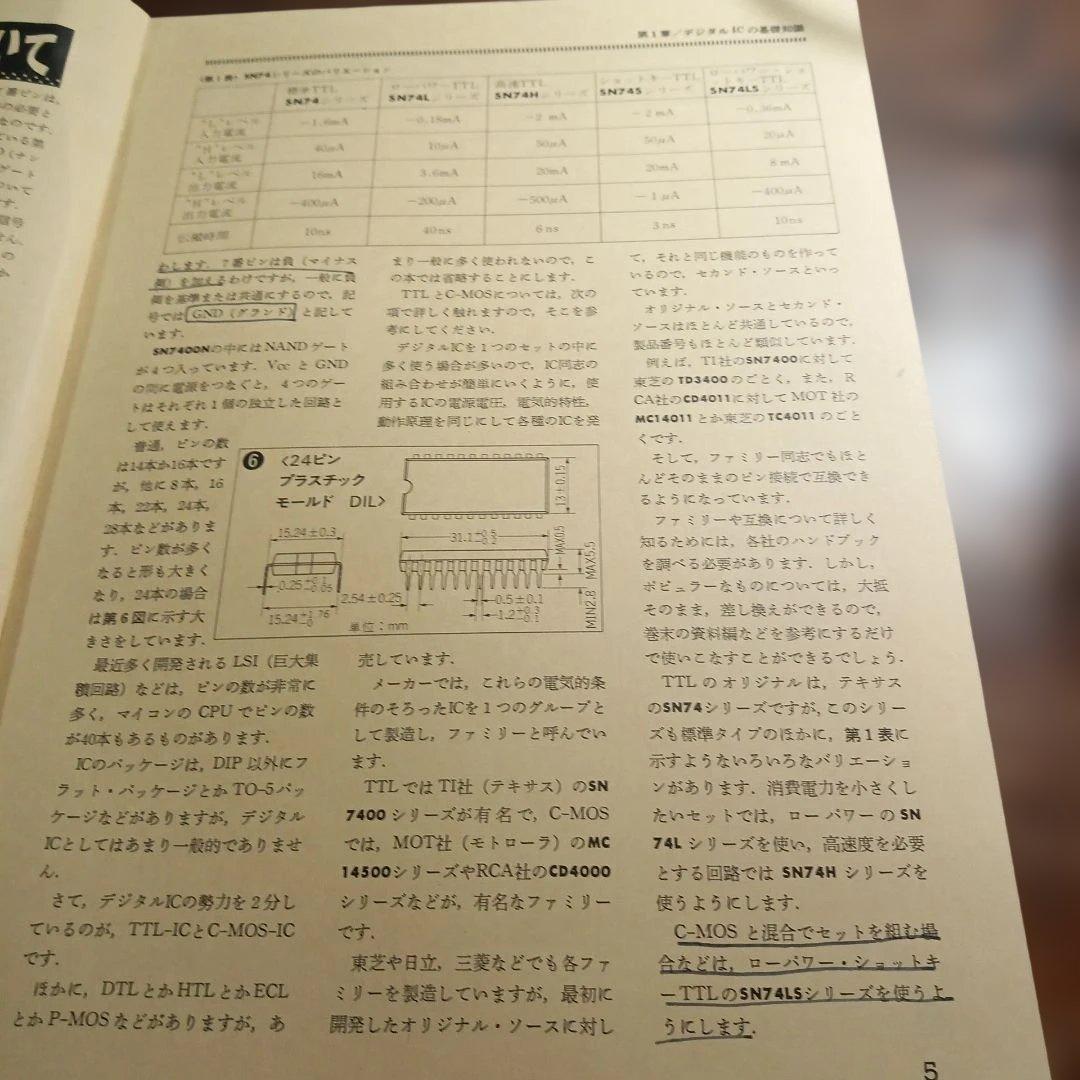 いて
番ピンは，
の必要と
なのです．
ている第
ゲート
ついて
す．
信号
せん．
の
か
第1章／デジタルICの基礎知識
〈第1表〉SN74シリーズのバリエーション
標準TTL SN74シリーズ
ローパワーTTL SN74Lシリーズ
高速TTL SN74Hシリーズ
ショットキーTTL SN74Sシリーズ
ローパワー・ショットキーTTL SN74LSシリーズ
“L”レベル入力電流 −1.6mA −0.18mA −2 mA −2 mA −0.36mA
“H”レベル入力電流 40μA 10μA 50μA 50μA 20μA
“L”レベル出力電流 16mA 3.6mA 20mA 20mA 8 mA
“H”レベル出力電流 −400μA −200μA −500μA −1 μA −400μA
伝搬時間 10ns 40ns 6 ns 3 ns 10ns
わします．7番ピンは負（マイナス
側）を加えるわけですが，一般に負
側を基準または共通にするので，記
号ではGND（グランド）と記して
います．
SN7400Nの中にはNANDゲート
が4つ入っています．VccとGND
の間に電源をつなぐと，4つのゲー
トはそれぞれ1個の独立した回路と
して使えます．
普通，ピンの数
は14本か16本です
が，他に8本，16
本，22本，24本，
28本などがありま
す．ピン数が多く
なると形も大きく
なり，24本の場合
は第6図に示す大
きさをしています．
最近多く開発されるLSI（巨大集
積回路）などは，ピンの数が非常に
多く，マイコンのCPUでピンの数
が40本もあるものがあります．
ICのパッケージは，DIP以外にフ
ラット・パッケージとかTO-5パッ
ケージなどがありますが，デジタル
ICとしてはあまり一般的でありませ
ん．
さて，デジタルICの勢力を2分し
ているのが，TTL-ICとC-MOS-IC
です．
ほかに，DTLとかHTLとかECL
とかP-MOSなどがありますが，あ
まり一般に多く使われないので，こ
の本では省略することにします．
TTLとC-MOSについては，次の
項で詳しく触れますので，そこを参
考にしてください．
デジタルICを1つのセットの中に
多く使う場合が多いので，IC同志の
組み合わせが簡単にいくように，使
用するICの電源電圧，電気的特性，
動作原理を同じにして各種のICを発
❻
〈24ピン
プラスチック
モールド DIL〉
13±0.15
15.24±0.3
31.1+0.5−0.2
MAX0.5
MAX5.5
0.25+0.1−0.05
2.54±0.25
0.5±0.1
MIN2.8
15.24+1.76−0
1.2+0.3−0.1
単位：mm
売しています．
メーカーでは，これらの電気的条
件のそろったICを1つのグループと
して製造し，ファミリーと呼んでい
ます．
TTLではTI社（テキサス）のSN
7400シリーズが有名で，C-MOS
では，MOT社（モトローラ）のMC
14500シリーズやRCA社のCD4000
シリーズなどが，有名なファミリー
です．
東芝や日立，三菱などでも各ファ
ミリーを製造していますが，最初に
開発したオリジナル・ソースに対し
て，それと同じ機能のものを作って
いるので，セカンド・ソースといっ
ています．
オリジナル・ソースとセカンド・
ソースはほとんど共通しているので，
製品番号もほとんど類似しています．
例えば，TI社のSN7400に対して
東芝のTD3400のごとく，また，R
CA社のCD4011に対してMOT社の
MC14011とか東芝のTC4011のごと
くです．
そして，ファミリー同志でもほと
んどそのままのピン接続で互換でき
るようになっています．
ファミリーや互換について詳しく
知るためには，各社のハンドブック
を調べる必要があります．しかし，
ポピュラーなものについては，大抵
そのまま，差し換えができるので，
巻末の資料編などを参考にするだけ
で使いこなすことができるでしょう．
TTLのオリジナルは，テキサス
のSN74シリーズですが，このシリー
ズも標準タイプのほかに，第1表に
示すようないろいろなバリエーショ
ンがあります．消費電力を小さくし
たいセットでは，ローパワーのSN
74Lシリーズを使い，高速度を必要
とする回路ではSN74Hシリーズを
使うようにします．
C-MOSと混合でセットを組む場
合などは，ローパワー・ショットキ
ーTTLのSN74LSシリーズを使うよ
うにします．
5